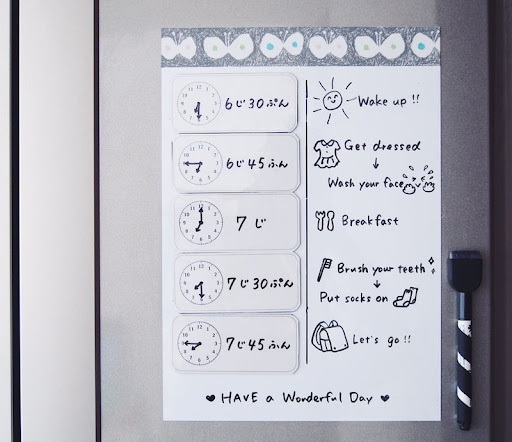 6じ30ぷん Wake up !!
6じ45ふん Get dressed
↓
Wash your face
7じ Breakfast
7じ30ぷん Brush your teeth
↓
Put socks on
7じ45ふん Let's go !!
♥ HAVE a Wonderful Day ♥